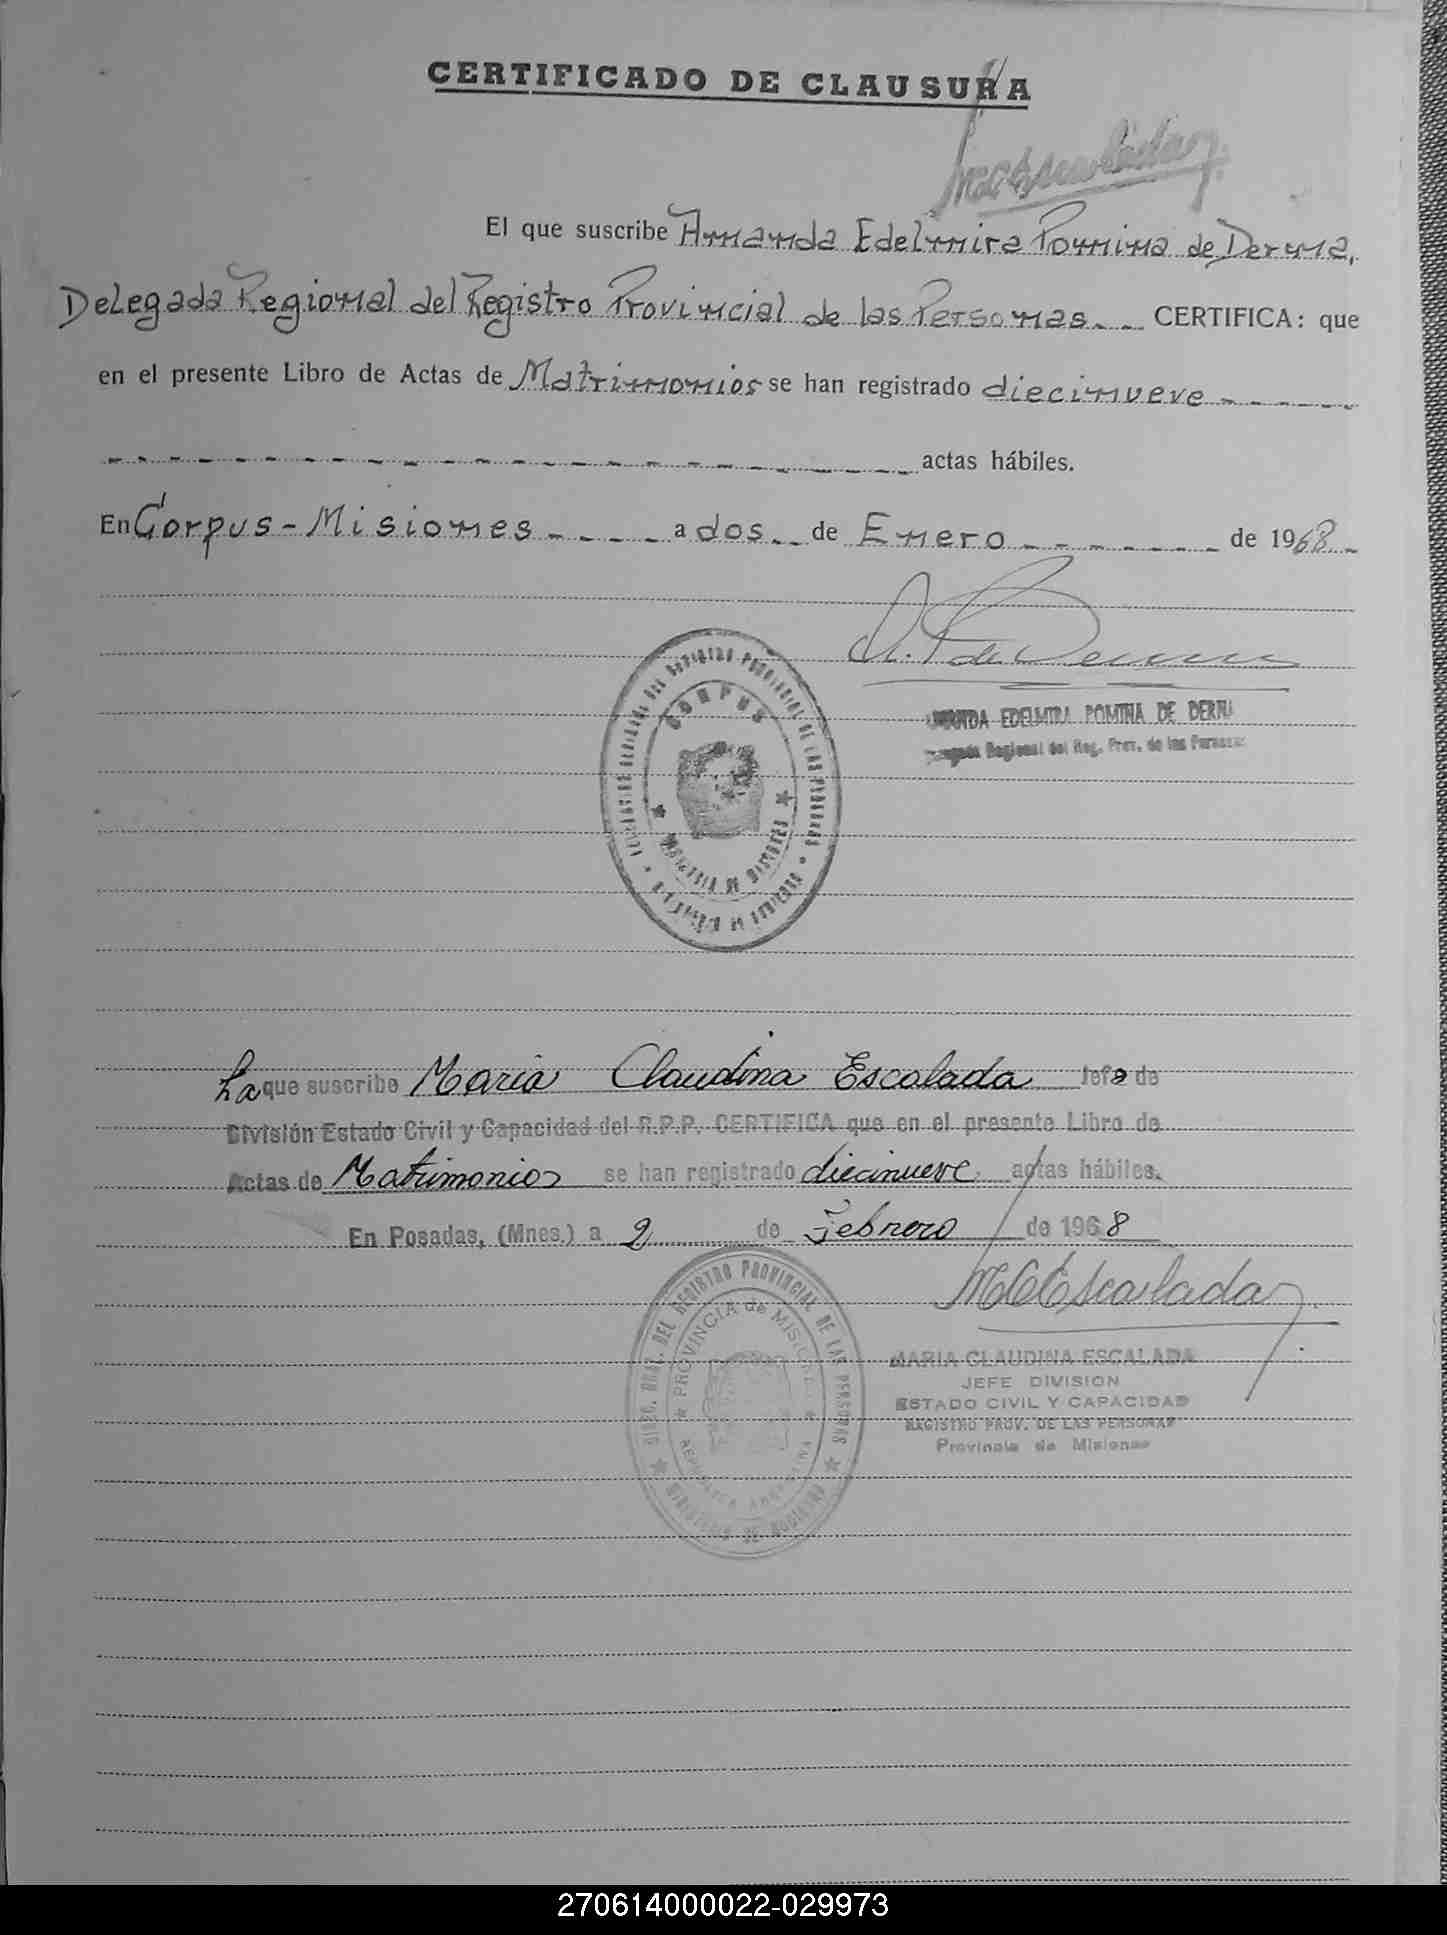 CERTIFICADO DE CLAUSURA
El que suscribe Amanda Edelmira Pomina de Derna,
Delegada Regional del Registro Provincial de las Personas CERTIFICA: que
en el presente Libro de Actas de Matrimonios se han registrado diecinueve
actas hábiles.
En Corpus - Misiones a dos de Enero de 1968
CORPUS
AMANDA EDELMIRA POMINA DE DERNA
Delegada Regional del Reg. Prov. de las Personas
PROVINCIA DE MISIONES
La que suscribe Maria Claudina Escalada Jefe de
División Estado Civil y Capacidad del R.P.P. CERTIFICA que en el presente Libro de
Actas de Matrimonios se han registrado diecinueve actas hábiles.
En Posadas, (Mnes.) a 2 de Febrero de 1968
MCEscalada
DIREC. GRAL. DEL REGISTRO PROVINCIAL DE LAS PERSONAS
PROVINCIA de MISIONES
REPUBLICA ARGENTINA
MINISTERIO DE GOBIERNO
MARIA CLAUDINA ESCALADA
JEFE DIVISION
ESTADO CIVIL Y CAPACIDAD
REGISTRO PROV. DE LAS PERSONAS
Provincia de Misiones
270614000022-029973